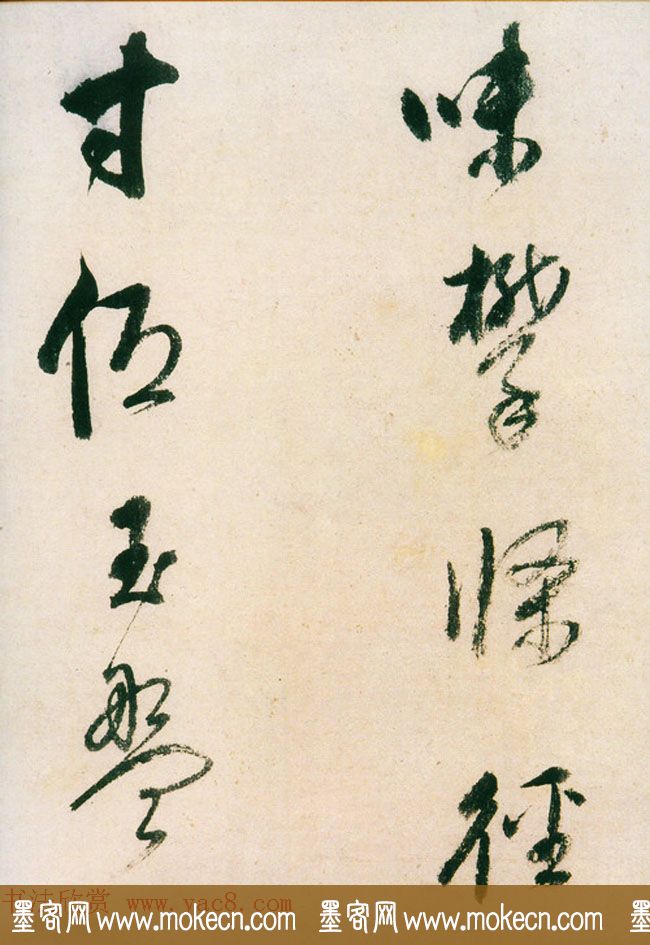 味攀條徑
寸玉盤
书法欣赏 www.yac8.com
墨客网 www.mokecn.com 墨客网 www.mokecn.com